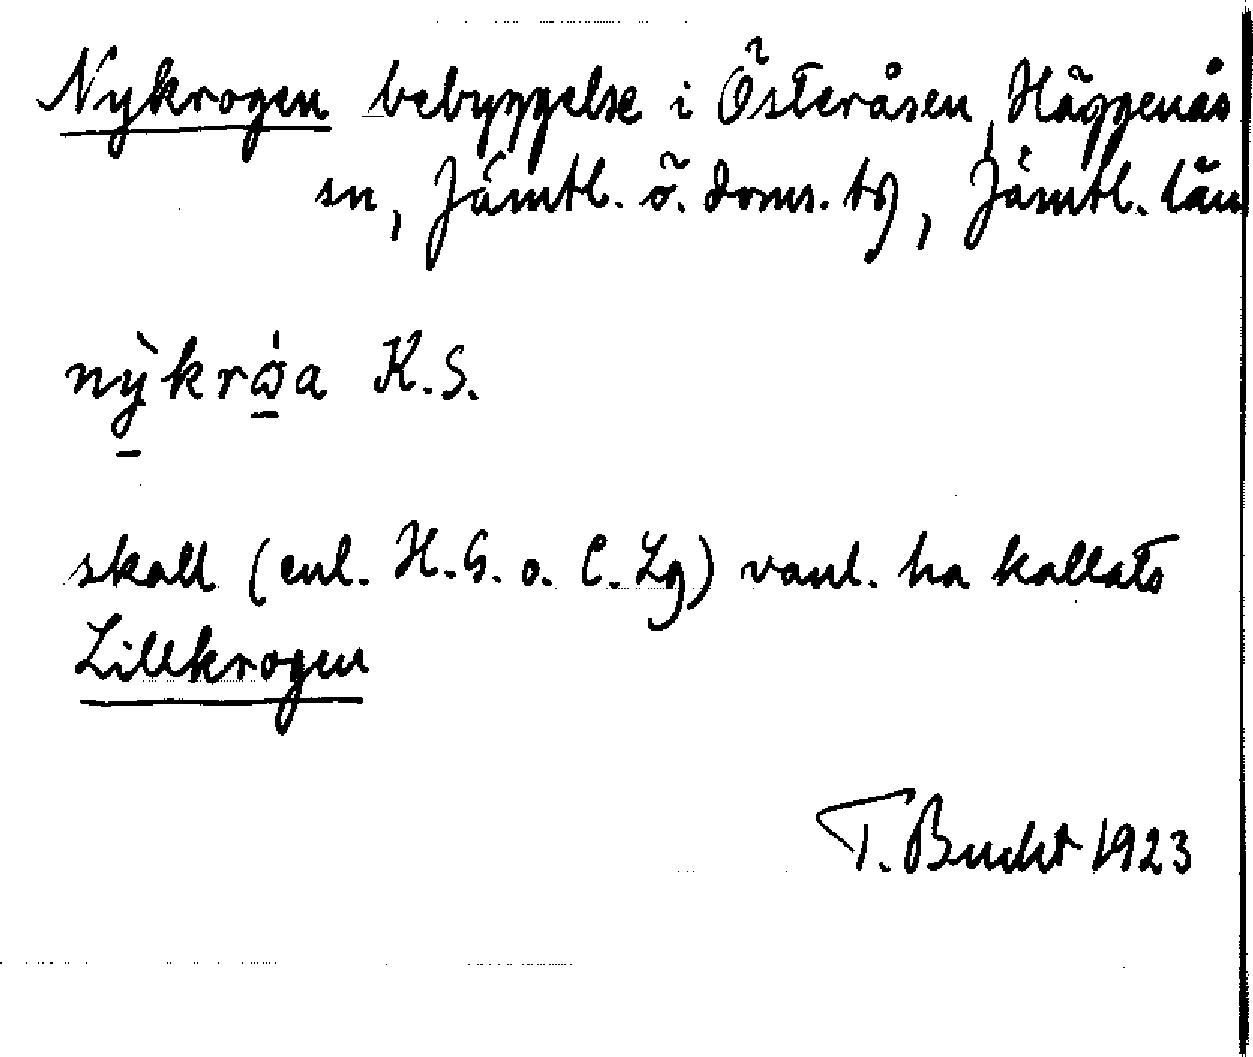 Nykrogen bebyggelse i Österåsen, Häggenås
sn, Jämtl. ö. doms. tg, Jämtl. län
nỳkrǫ́a K.S.
skall (enl. H.G. o. C. Lg) vanl. ha kallats
Lillkrogen
T. Bucht 1923